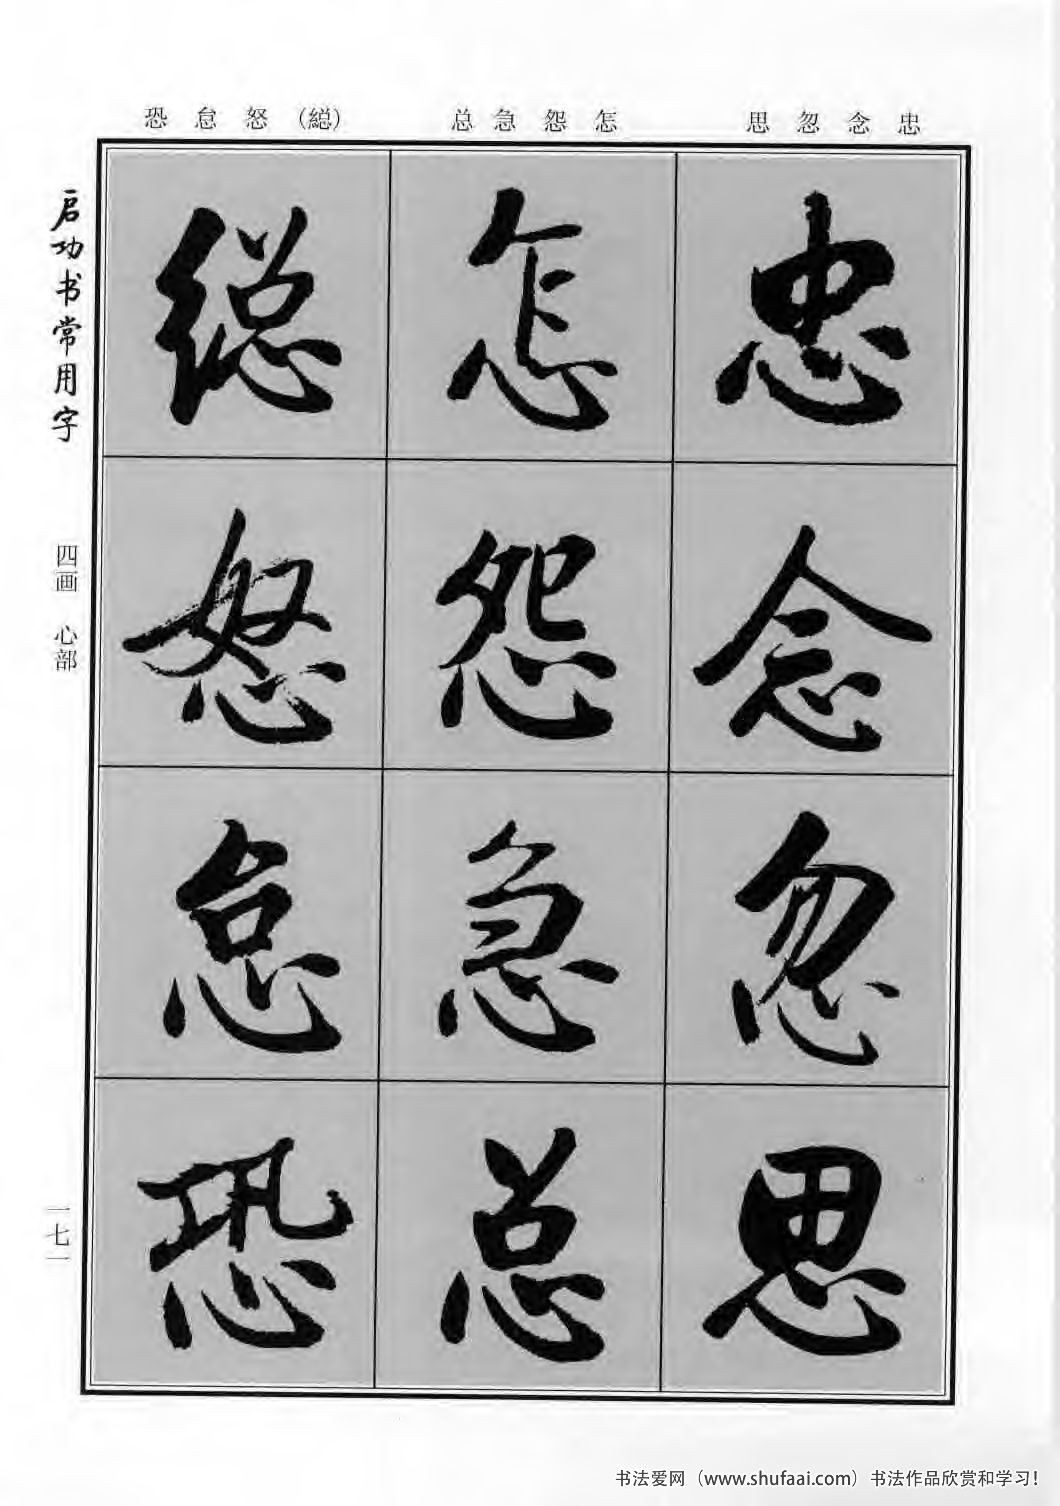 忠 念 忽 思
怎 怨 急 总
(縂) 怒 怠 恐
忠
念
忽
思
怎
怨
急
总
縂
怒
怠
恐
启功书常用字
四画 心部
一七一
书法爱网（www.shufaai.com）书法作品欣赏和学习！